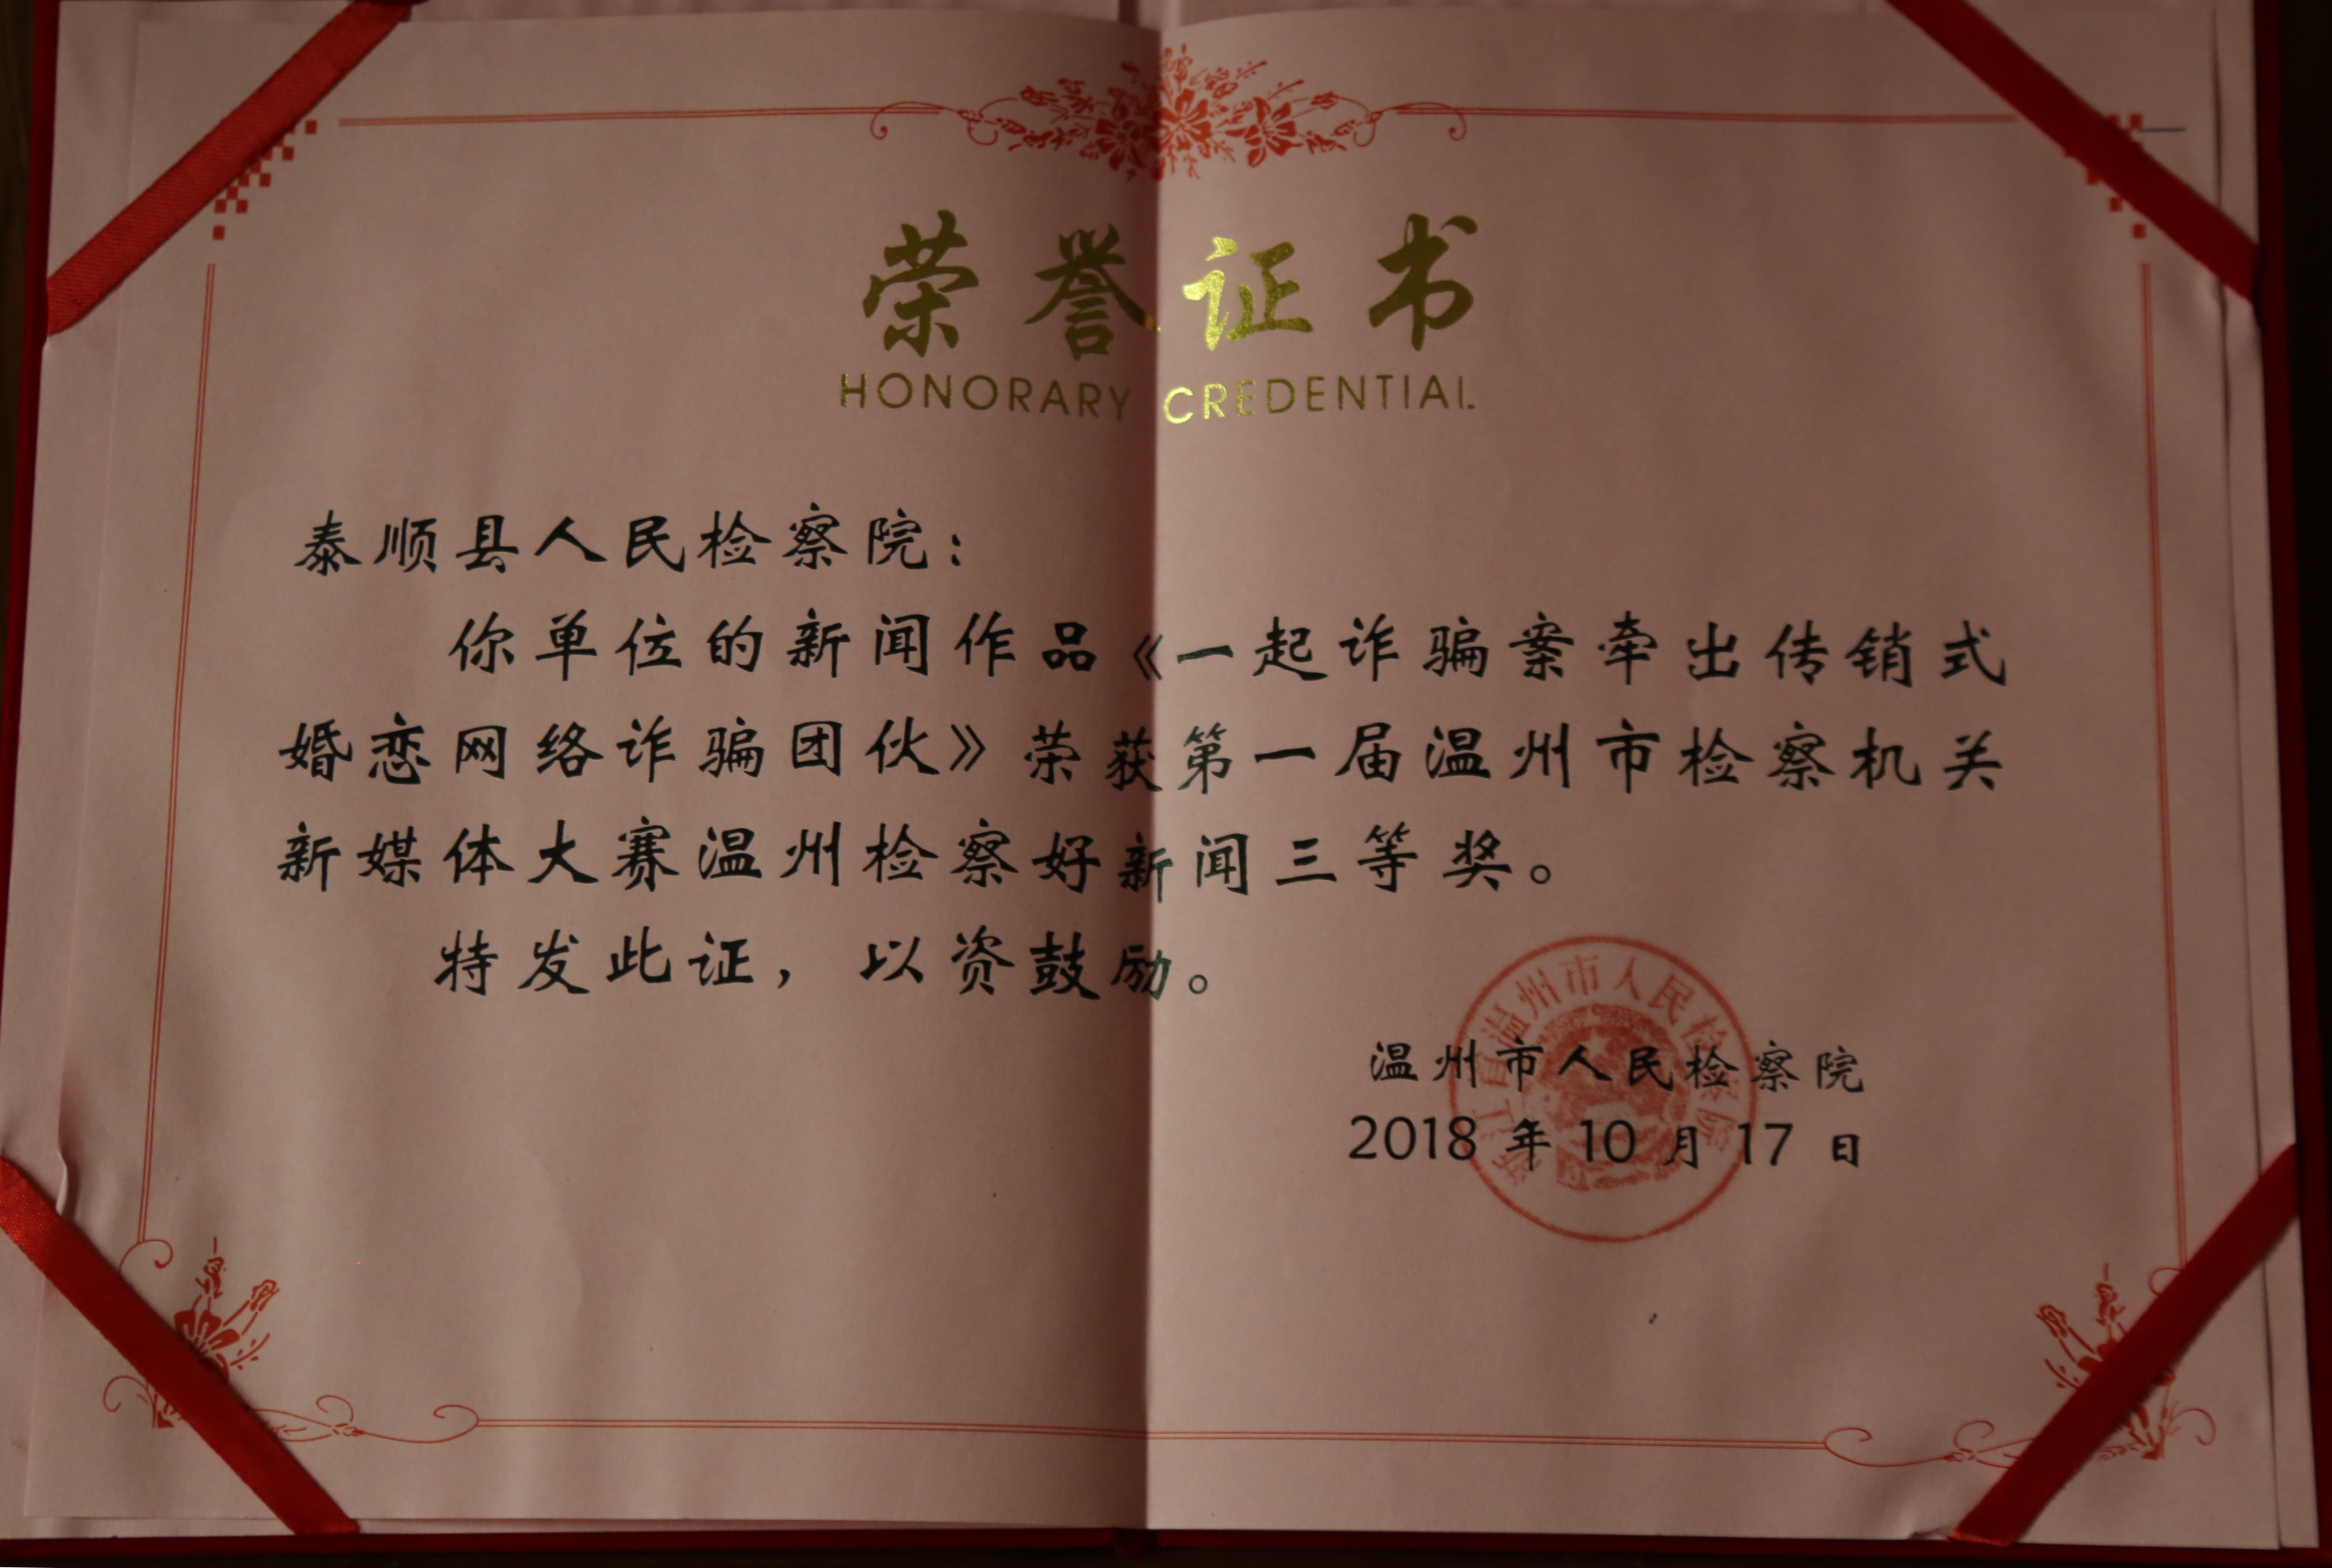 荣誉证书
HONORARY CREDENTIAL
泰顺县人民检察院：
你单位的新闻作品《一起诈骗案牵出传销式
婚恋网络诈骗团伙》荣获第一届温州市检察机关
新媒体大赛温州检察好新闻三等奖。
特发此证，以资鼓励。
浙江省温州市人民检察院
温州市人民检察院
2018 年 10 月 17 日